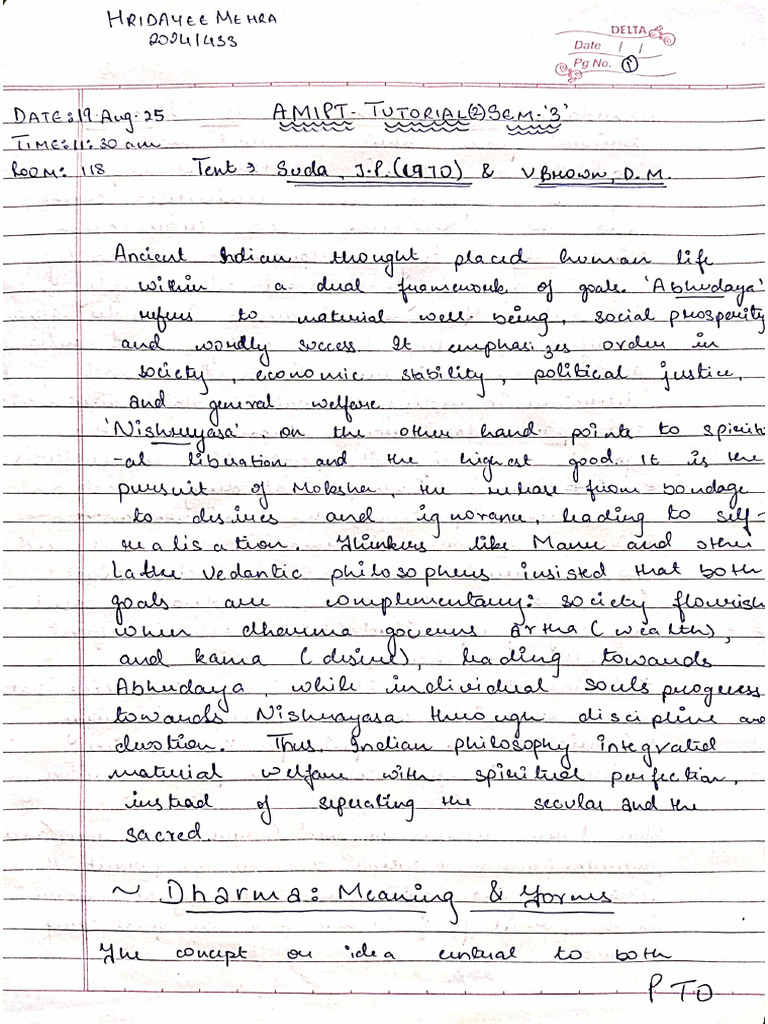 HRIDAYEE MEHRA
2024/433
DELTA
Date / /
Pg No. 1
DATE: 19 Aug. 25 AMIPT - TUTORIAL (2) SEM-'3'
TIME: 11:30 am
ROOM: 118 Text → Suda, J.P. (1970) & V BROWN, D.M.
Ancient Indian thought placed human life
within a dual framework of goals. 'Abhudaya'
refers to material well-being, social prosperity
and wordly success. It emphasizes order in
society, economic stability, political justice,
and general welfare
'Nishreyasa', on the other hand points to spiritu
-al liberation and the highest good. It is the
pursuit of Moksha, the release from bondage
to desires and ignorance, leading to self-
realisation. Thinkers like Manu and other
Later vedantic philosophers insisted that both
goals are complimentary: society flourish
when dharma governs Artha (wealth),
and kama (desire), leading towards
Abhudaya, while individual souls progress
towards Nishrayasa through discipline and
devotion. Thus, Indian philosophy integrated
material welfare with spiritual perfection,
instead of seperating the secular and the
sacred.
~ Dharma: Meaning & Forms
The concept or idea central to both
PTO